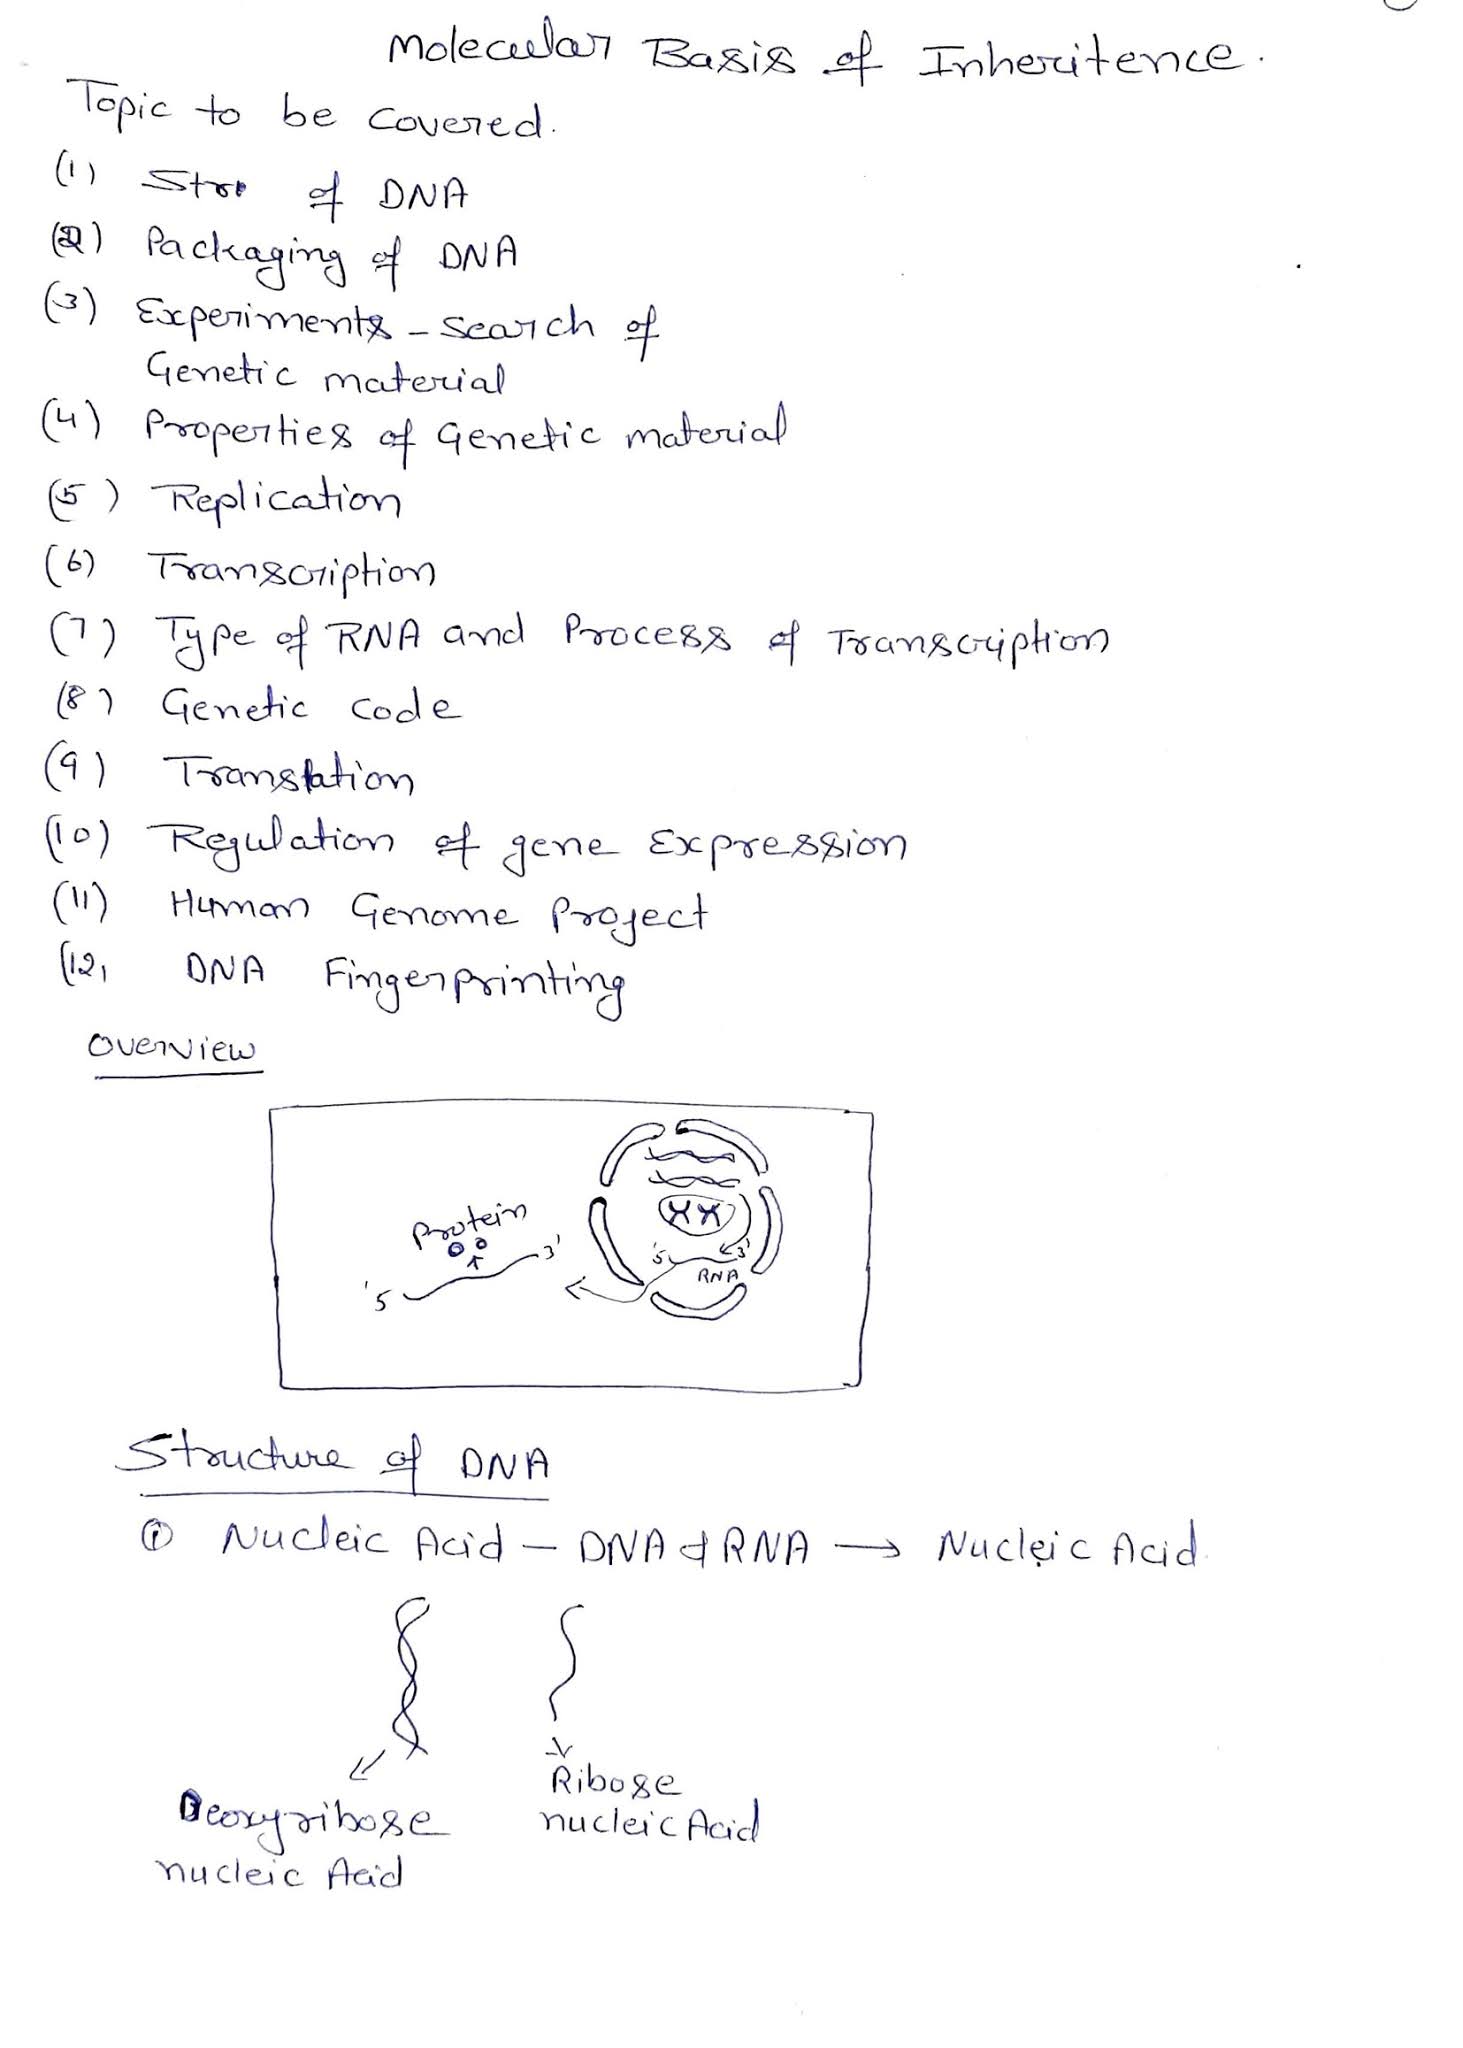 Molecular Basis of Inheritence.
Topic to be covered.
(1) Str of DNA
(2) Packaging of DNA
(3) Experiments - search of
Genetic material
(4) Properties of Genetic material
(5) Replication
(6) Transcription
(7) Type of RNA and Process of Transcription
(8) Genetic code
(9) Translation
(10) Regulation of gene Expression
(11) Human Genome Project
(12) DNA Fingerprinting
Overview
Protein
'5 3'
'5 3'
RNA
Structure of DNA
① Nucleic Acid - DNA & RNA → Nucleic Acid
Deoxyribose
nucleic Acid
Ribose
nucleic Acid